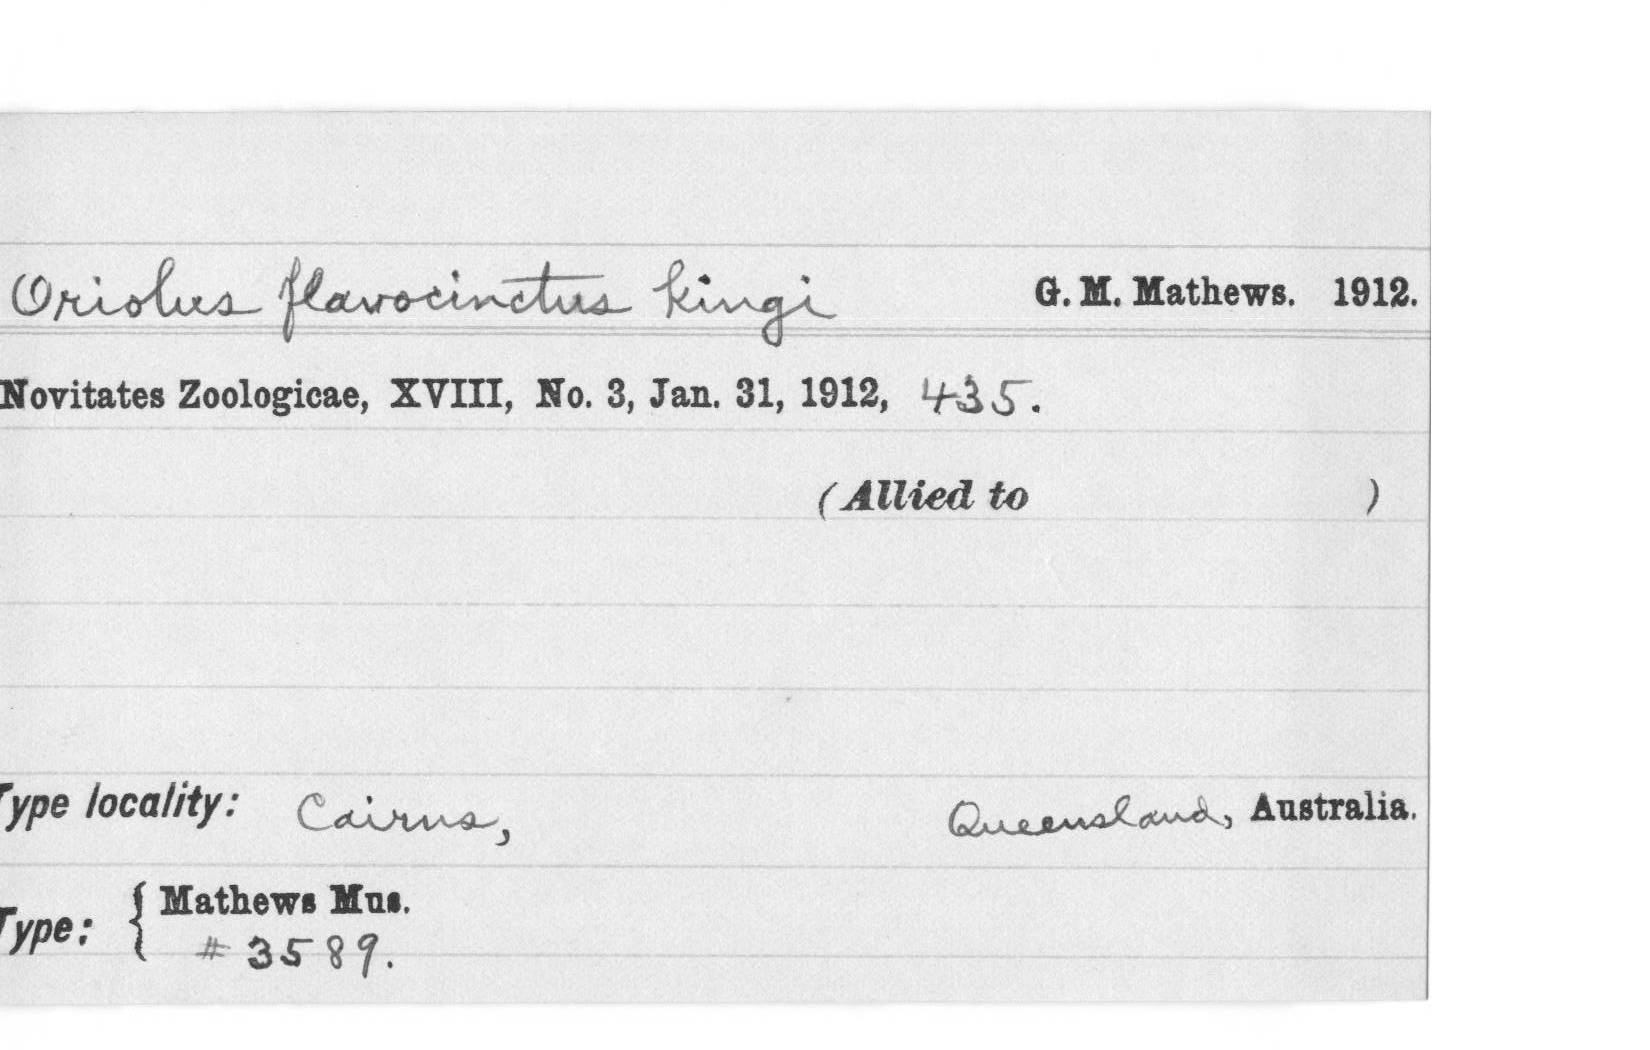 Oriolus flavocinctus kingi G. M. Mathews. 1912.
Novitates Zoologicae, XVIII, No. 3, Jan. 31, 1912, 435.
(Allied to )
Type locality: Cairns, Queensland, Australia.
Type: { Mathews Mus.
# 3589.